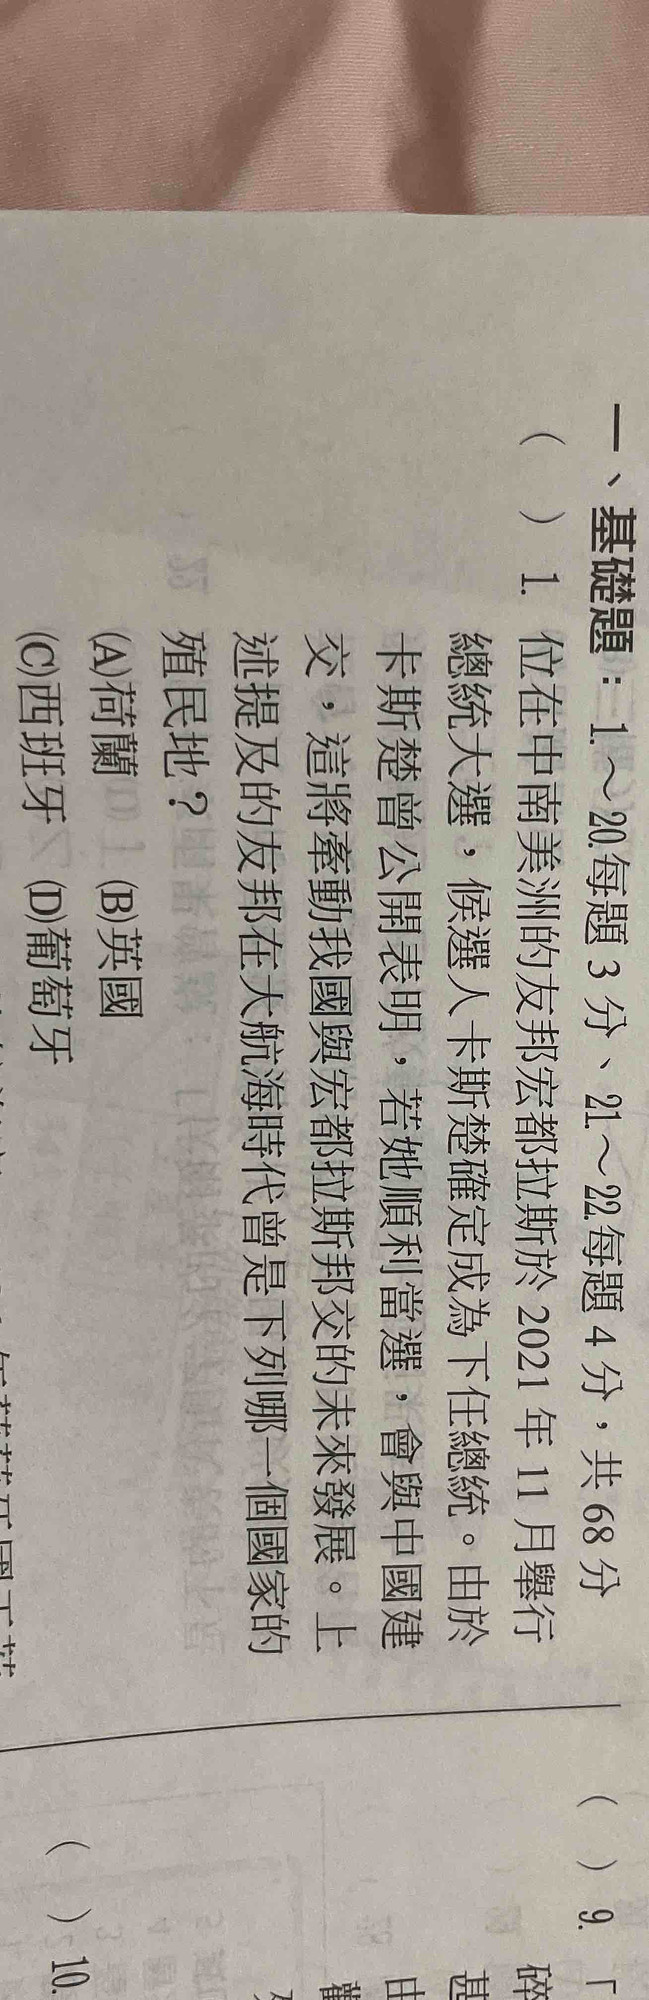 一、基礎題：1.～20.每題3分、21.～22.每題4分，共68分
（　）1. 位在中南美洲的友邦宏都拉斯於2021年11月舉行
總統大選，候選人卡斯楚確定成為下任總統。由於
卡斯楚曾公開表明，若她順利當選，會與中國建
交，這將牽動我國與宏都拉斯邦交的未來發展。上
述提及的友邦在大航海時代曾是下列哪一個國家的
殖民地？
(A)荷蘭　(B)英國
(C)西班牙　(D)葡萄牙
（　）9.「
碎
甚
由
（　）10.